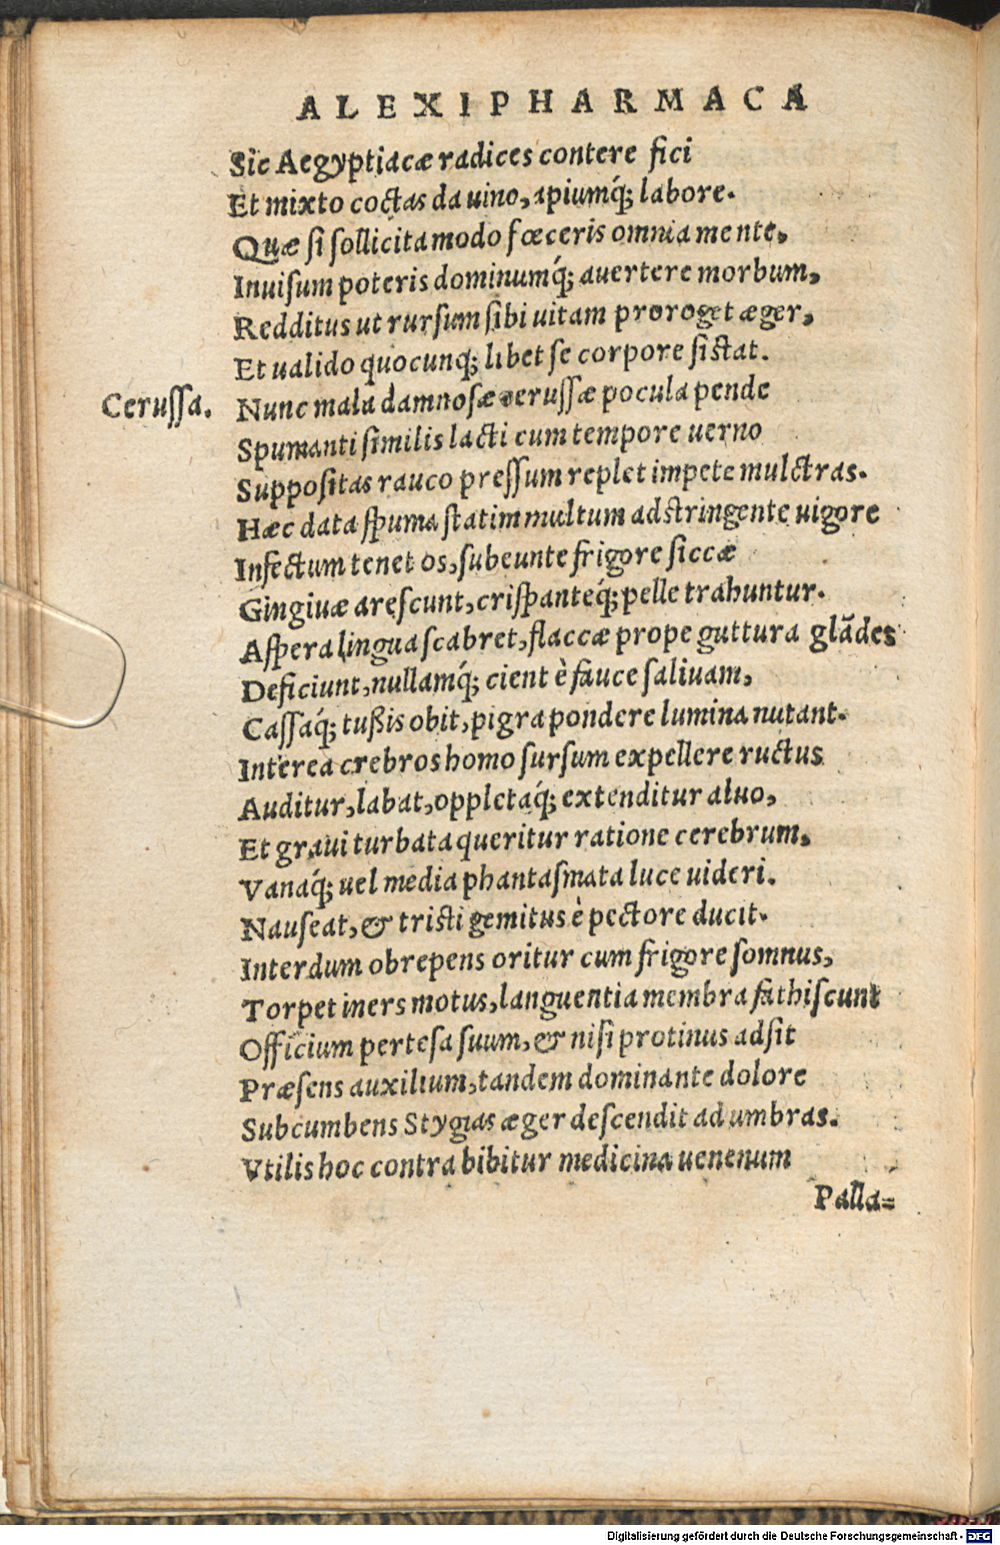 ALEXIPHARMACA
Sic Aegyptiacæ radices contere fici
Et mixto coctas da uino, apiumq́; labore.
Quæ si sollicita modo fœceris omnia mente,
Inuisum poteris dominumq́; auertere morbum,
Redditus ut rursum sibi uitam proroget æger,
Et ualido quocunq; libet se corpore sistat.
Cerussa. Nunc mala damnosæ cerussæ pocula pende
Spumanti similis lacti cum tempore uerno
Suppositas rauco pressum replet impete mulctras.
Hæc data spuma statim multum adstringente uigore
Infectum tenet os, subeunte frigore siccæ
Gingiuæ arescunt, crispanteq́; pelle trahuntur.
Aspera lingua scabret, flaccæ prope guttura glādes
Deficiunt, nullamq́; cient è fauce saliuam,
Cassaq́; tußis obit, pigra pondere lumina nutant.
Interea crebros homo sursum expellere ructus
Auditur, labat, oppletaq́; extenditur aluo,
Et graui turbata queritur ratione cerebrum,
Vanaq́; uel media phantasmata luce uideri.
Nauseat, & tristi gemitus è pectore ducit.
Interdum obrepens oritur cum frigore somnus,
Torpet iners motus, languentia membra fathiscunt
Officium pertesa suum, & nisi protinus adsit
Præsens auxilium, tandem dominante dolore
Subcumbens Stygias æger descendit ad umbras.
Vtilis hoc contra bibitur medicina uenenum
Palla=
Digitalisierung gefördert durch die Deutsche Forschungsgemeinschaft - DFG